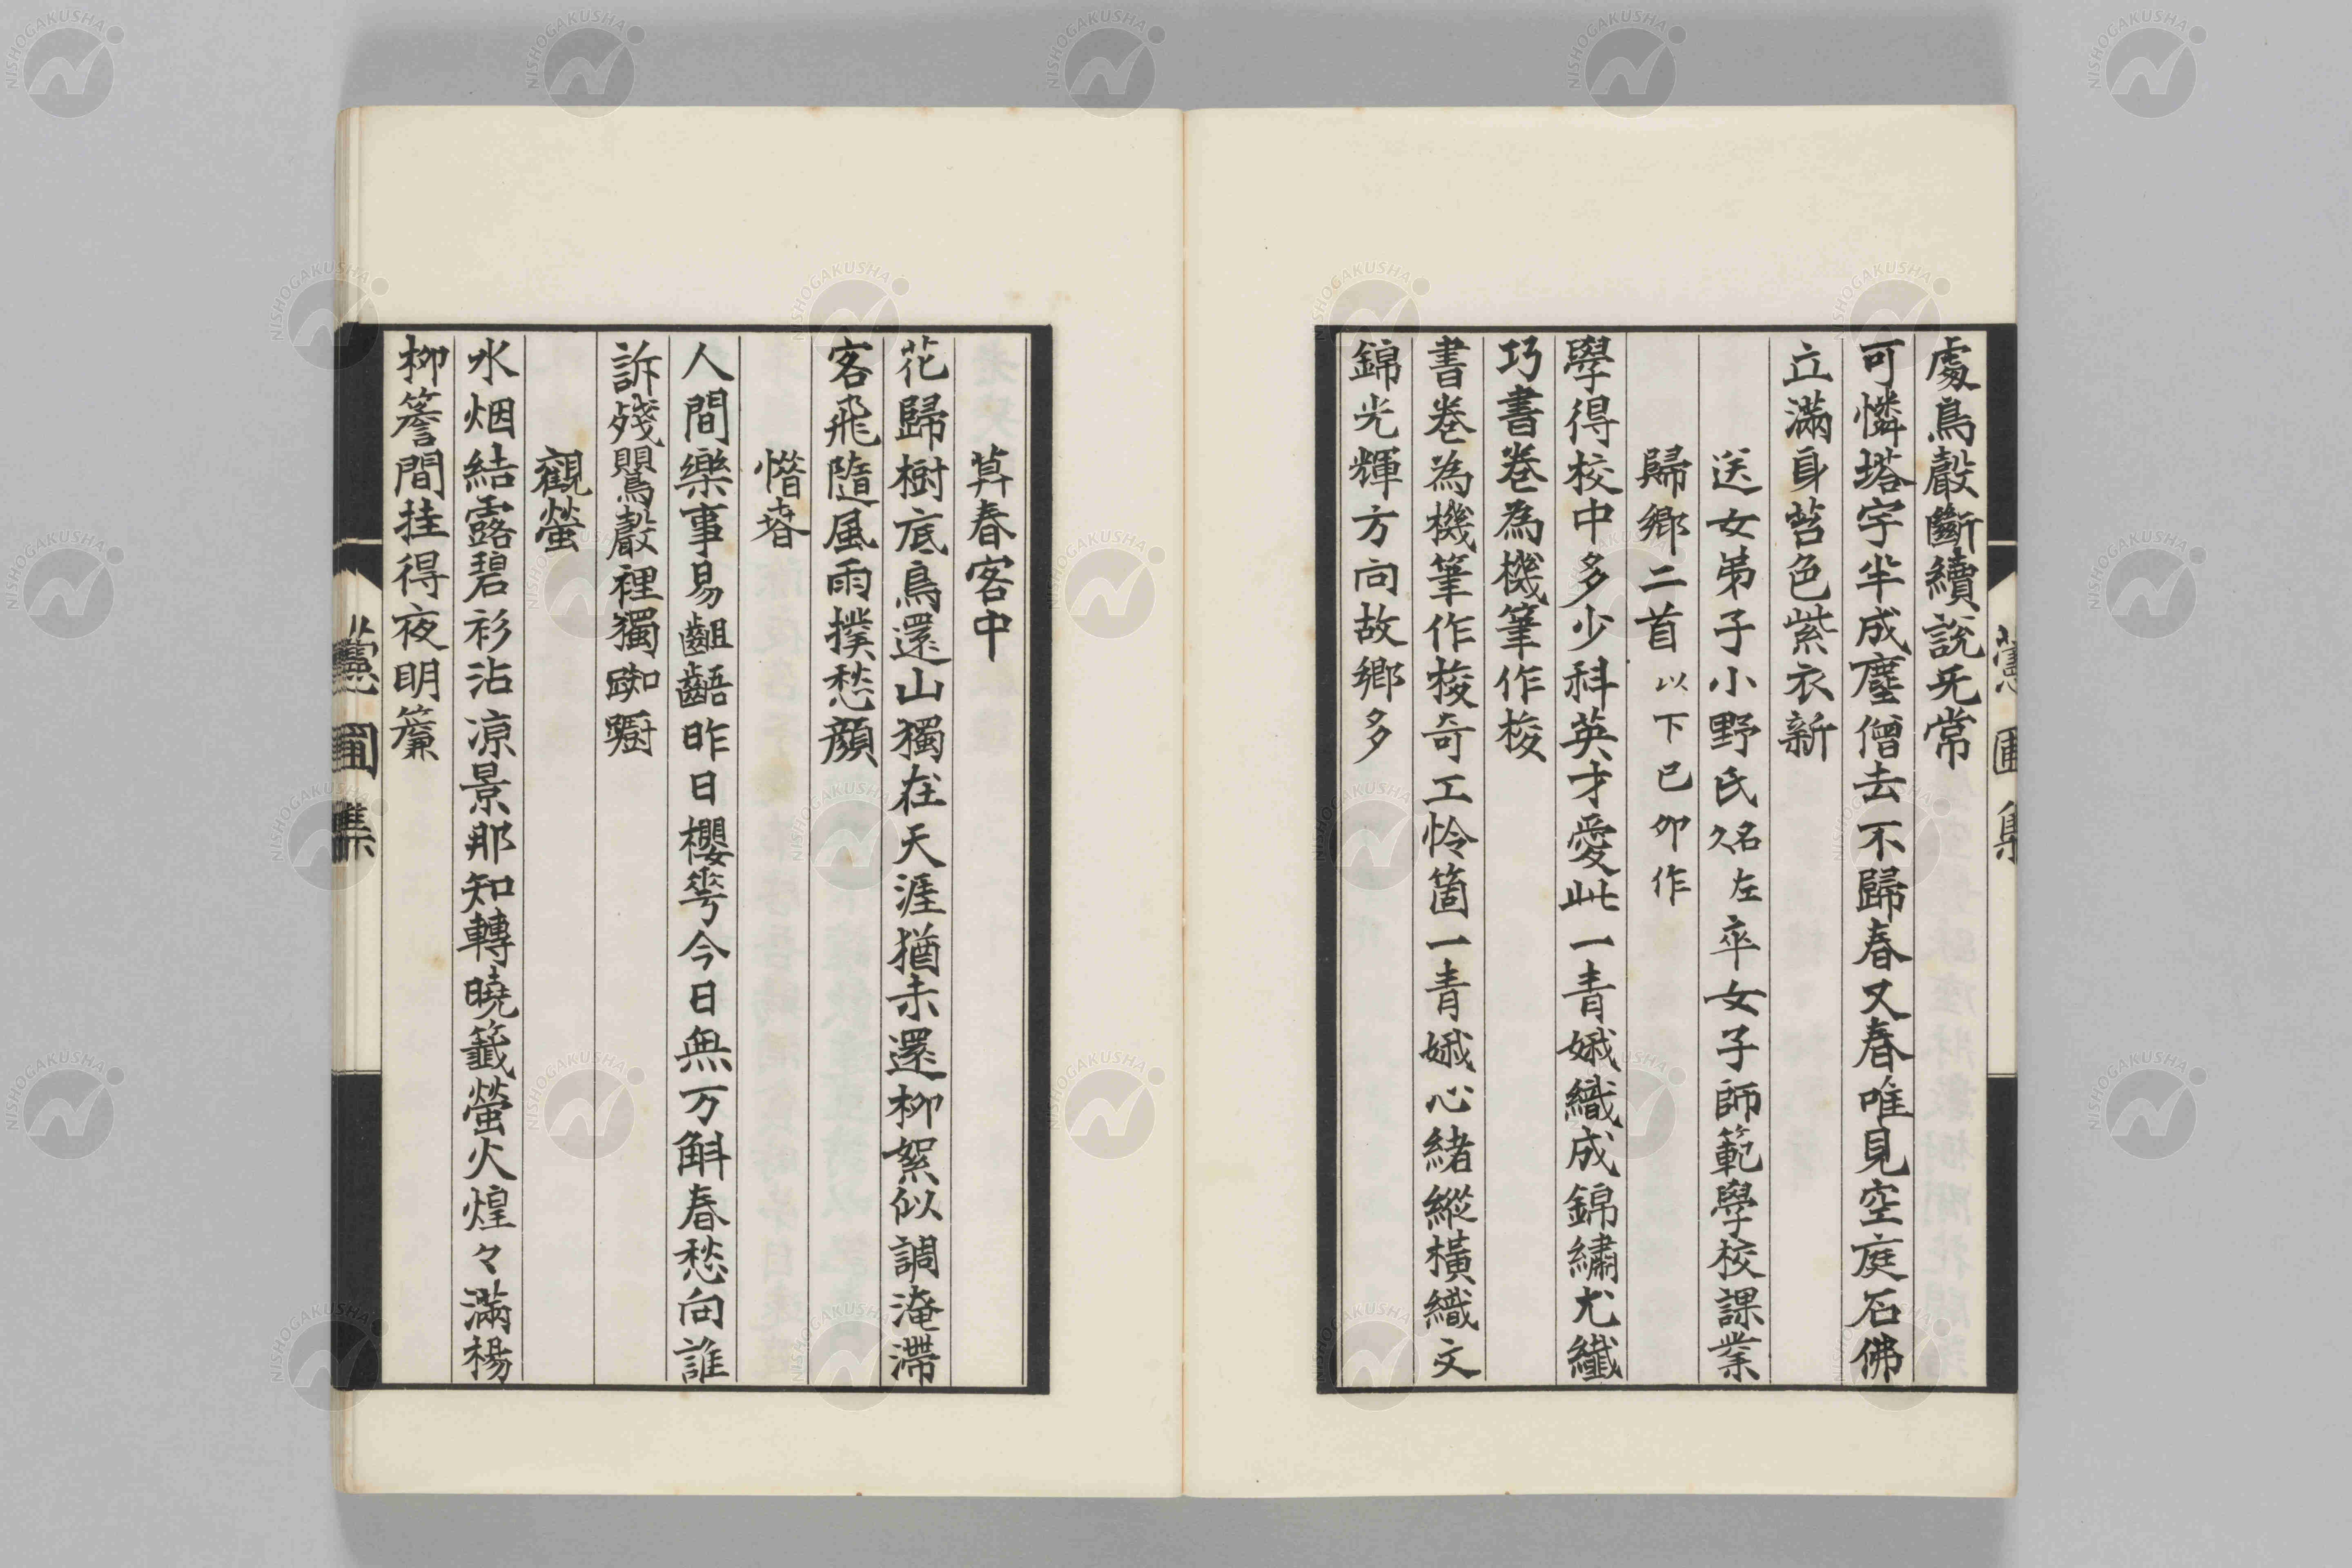 處鳥嚴斷續說无常
可憐塔宇半成塵僧去不歸春又春唯見空庭石佛
立滿身苔色紫衣新
送女弟子小野氏名左久卒女子師範學校課業
歸鄉二首以下己卯作
學得校中多少科英才愛此一青娥織成錦繡尤纖
巧書卷為機筆作梭
書卷為機筆作梭奇工怜箇一青娥心緒縱橫織文
錦光輝方向故鄉多
算春客中
花歸樹底鳥還山獨在天涯猶未還柳絮似調淹滯
客飛隨風雨撲愁顏
惜春
人間樂事易齟齬昨日櫻雩今日無万斛春愁向誰
訴殘鸎嚴裡獨踟躕
觀螢
水烟結露碧衫沾凉景那知轉曉籤螢火煌々滿楊
柳簷間挂得夜明簾
圃集
圃集
NISHOGAKUSHA